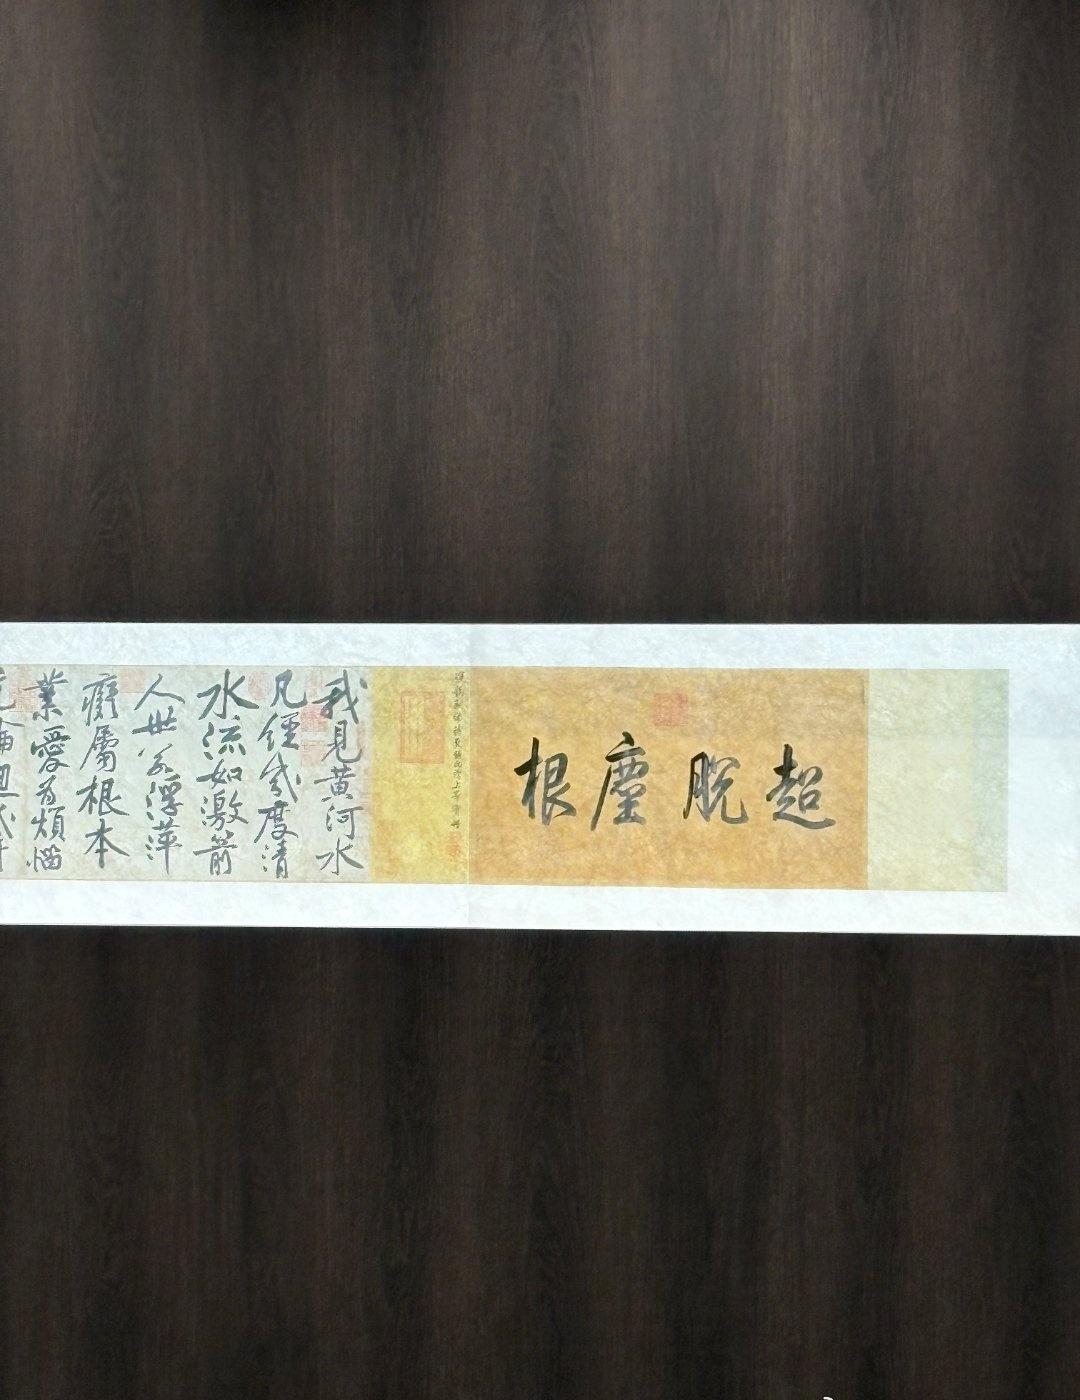 超脫塵根
我見黃河水
凡經幾度清
水流如激箭
人世若浮萍
癡屬根本
業愛為煩惱